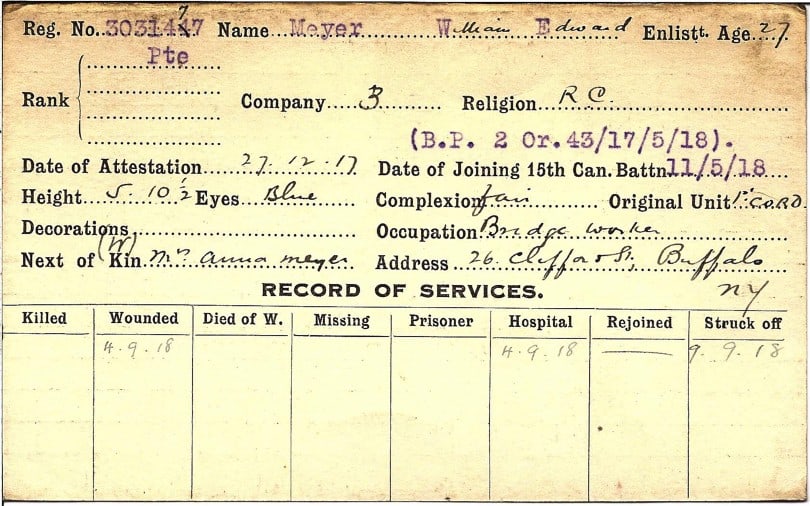 Reg. No. 3031447 7 Name Meyer William Edward Enlistt. Age 27
Pte
Rank Company 3 Religion R C.
(B.P. 2 Or. 43/17/5/18).
Date of Attestation 27.12.17 Date of Joining 15th Can. Battn. 11/5/18
Height 5. 10 ½ Eyes Blue Complexion fair Original Unit 1st C.O.R.D.
Decorations Occupation Bridge worker
(W)
Next of Kin Mrs Anna Meyer Address 26. Clifford St, Buffalo
NY
RECORD OF SERVICES.
Killed Wounded Died of W. Missing Prisoner Hospital Rejoined Struck off
4.9.18 4.9.18 9.9.18